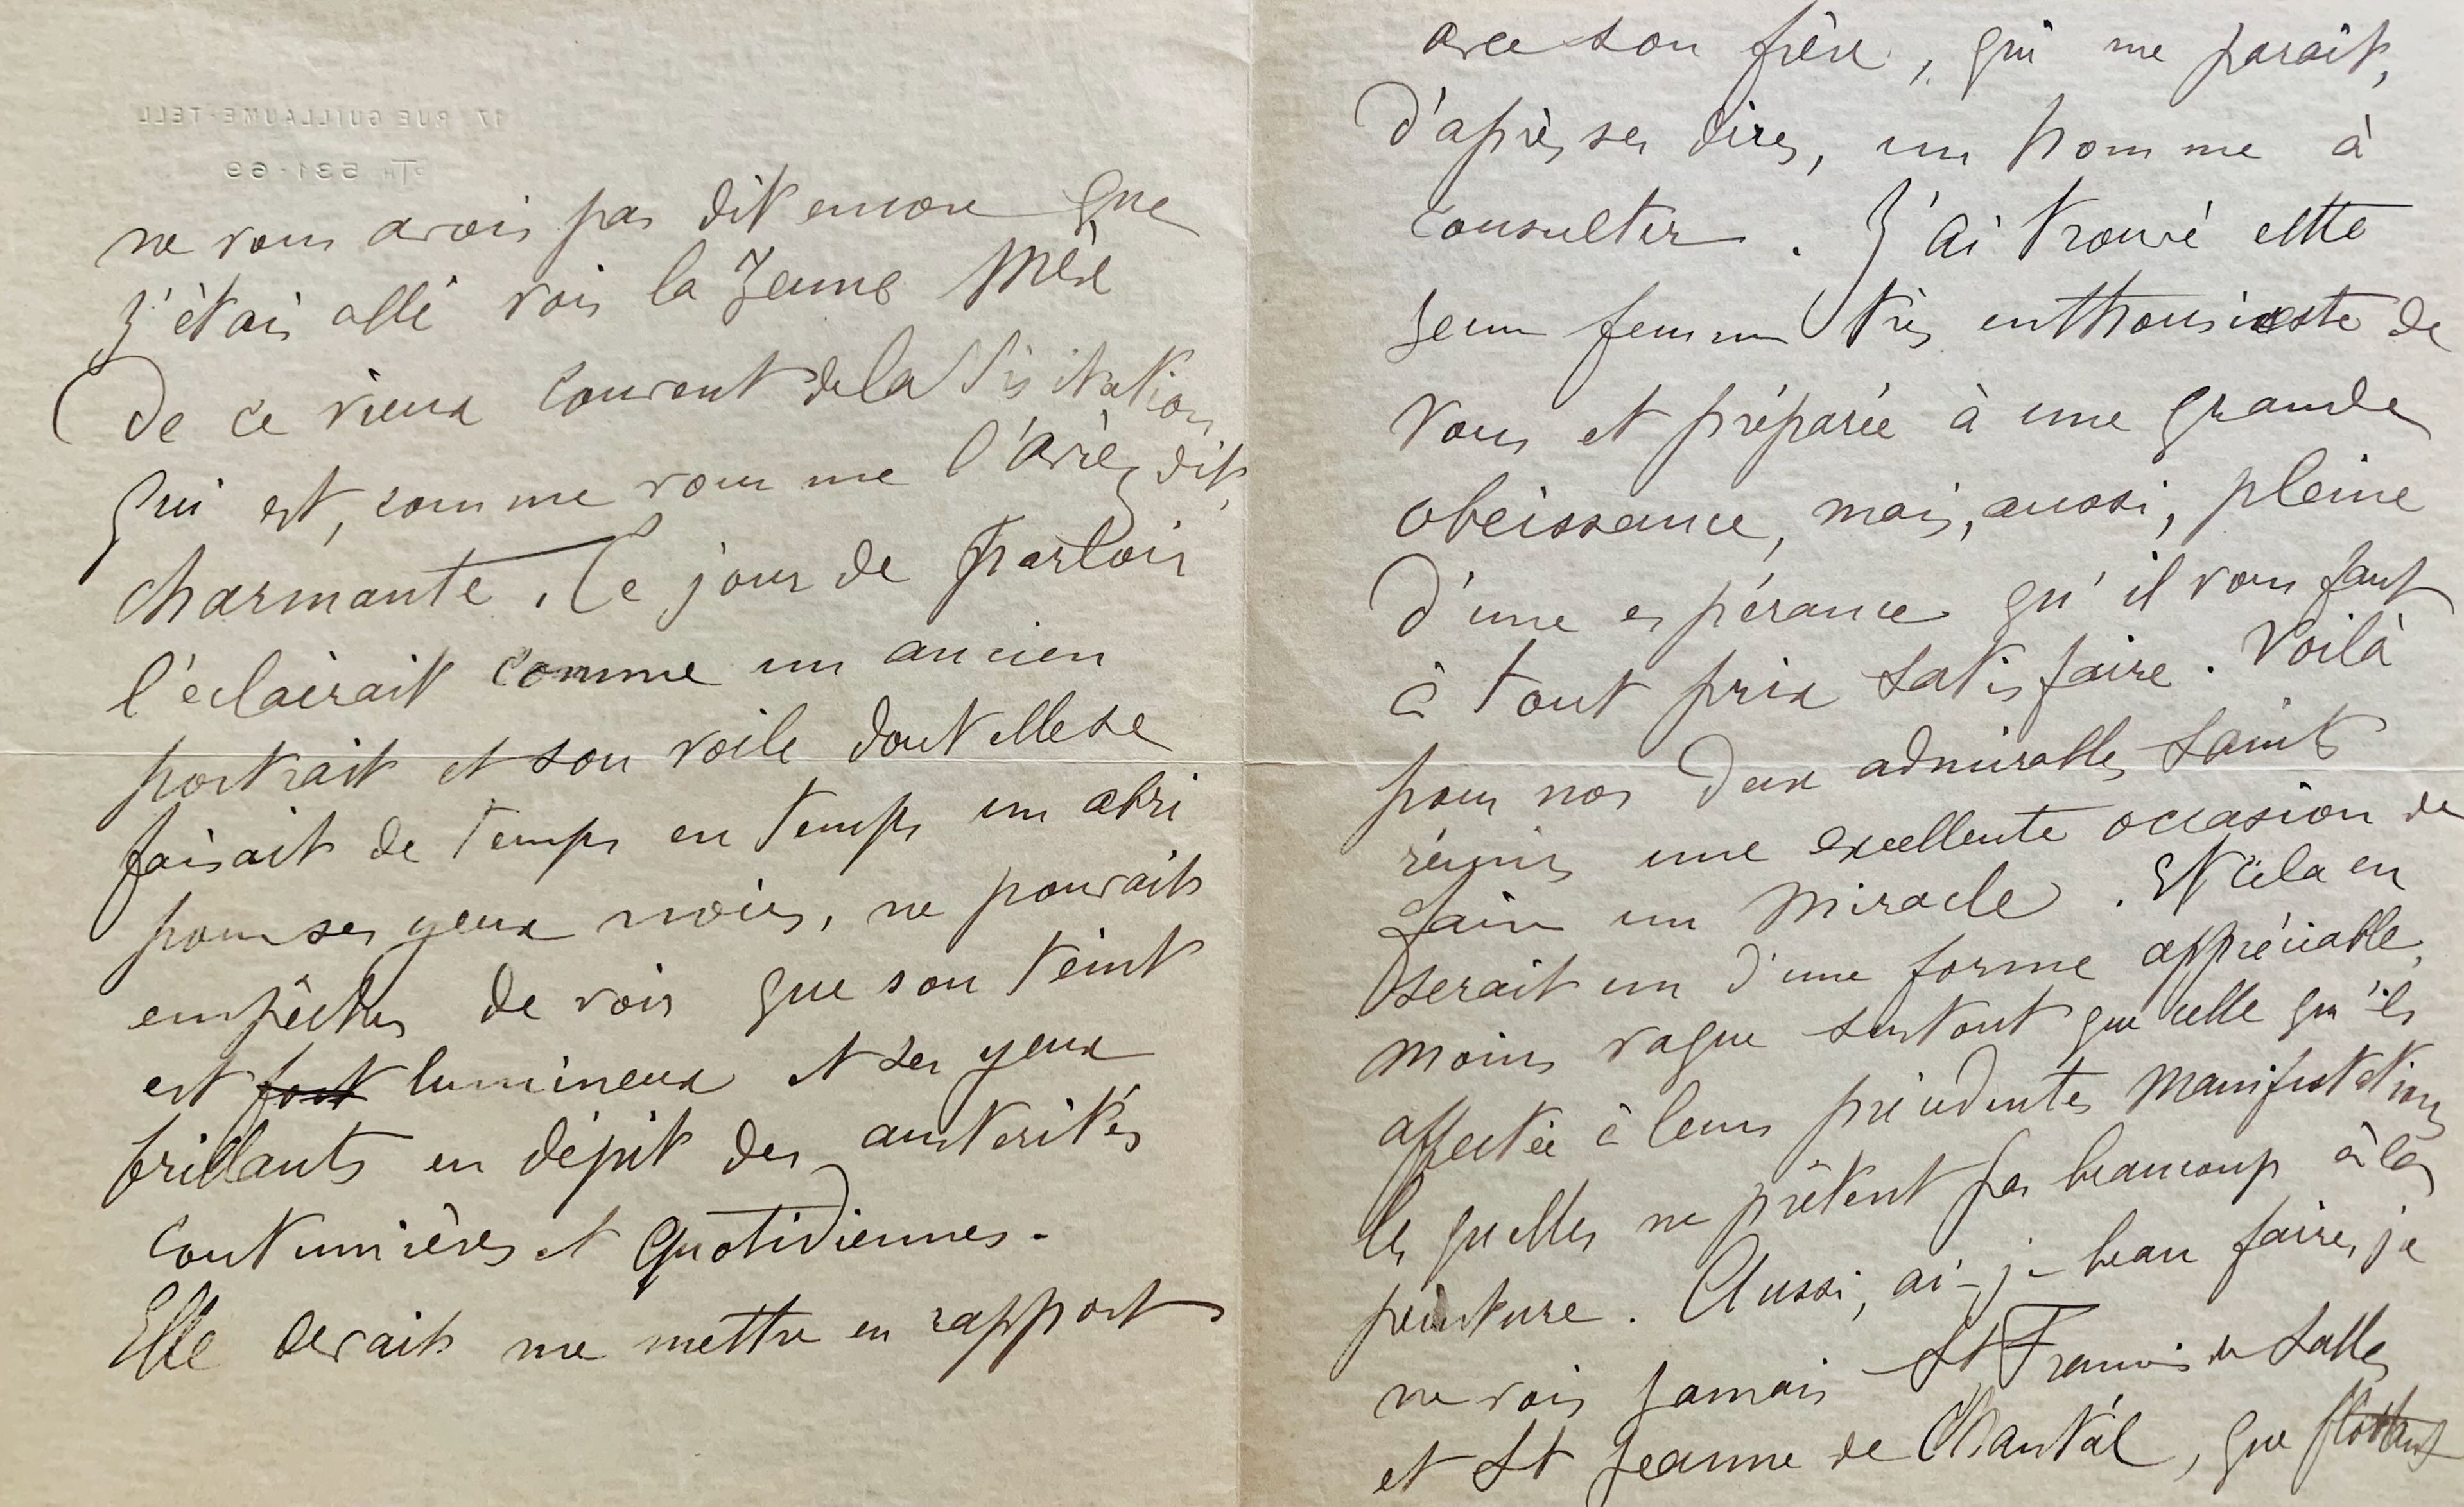 17 RUE GUILLAUME-TELL
TÉL 531-69
ne vous avais pas dit encore que
j'étais allé voir la Jeune Mère
de ce vieux couvent de la Visitation
qui est, comme vous me l'aviez dit,
charmante. Le jour de parloir
l'éclairait comme un ancien
portrait et son voile dont elle se
faisait de temps en temps un abri
pour ses yeux noirs, ne pouvait
empêcher de voir que son teint
est fort lumineux et ses yeux
brillants en dépit des austérités
coutumières et quotidiennes.
Elle devait me mettre en rapport
avec son frère, qui me parait,
d'après ses dires, un homme à
consulter. J'ai trouvé cette
jeune femme très enthousiaste de
vous et préparée à une grande
obéissance, mais, aussi, pleine
d'une espérance qu'il vous faut
à tout prix satisfaire. Voilà
pour nos deux admirables saints
réunis une excellente occasion de
faire un miracle. Et cela en
serait un d'une forme appréciable,
moins vague surtout que celle qu'ils
affectée à leurs précédentes manifestations
lesquelles ne prêtent pas beaucoup à la
peinture. Aussi, ai-je beau faire, je
ne vois jamais St François de Salles
et St Jeanne de Chantal, que flottant